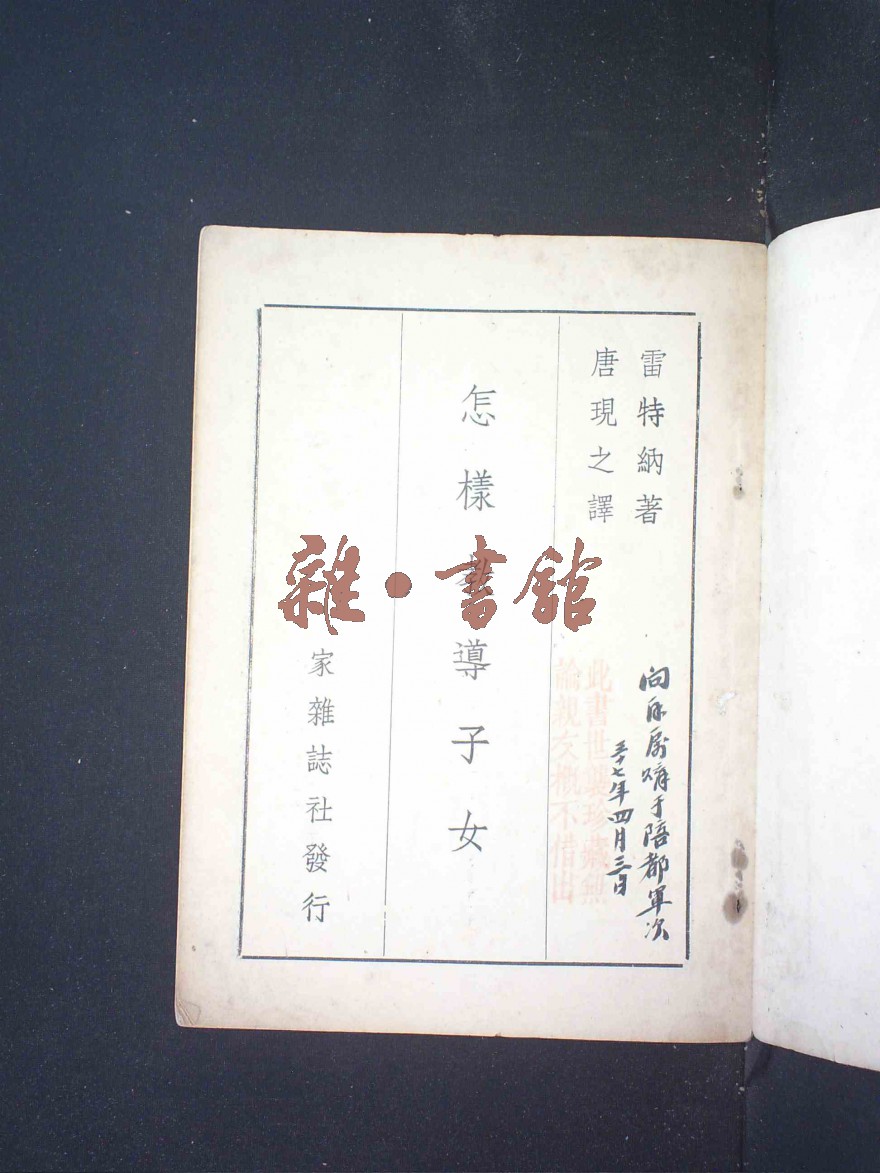 雷特納著
唐現之譯
怎樣教導子女
家雜誌社發行
于陪都軍次
三十七年四月三日
此書世襲珍藏無
論親友概不借出
雜·書館